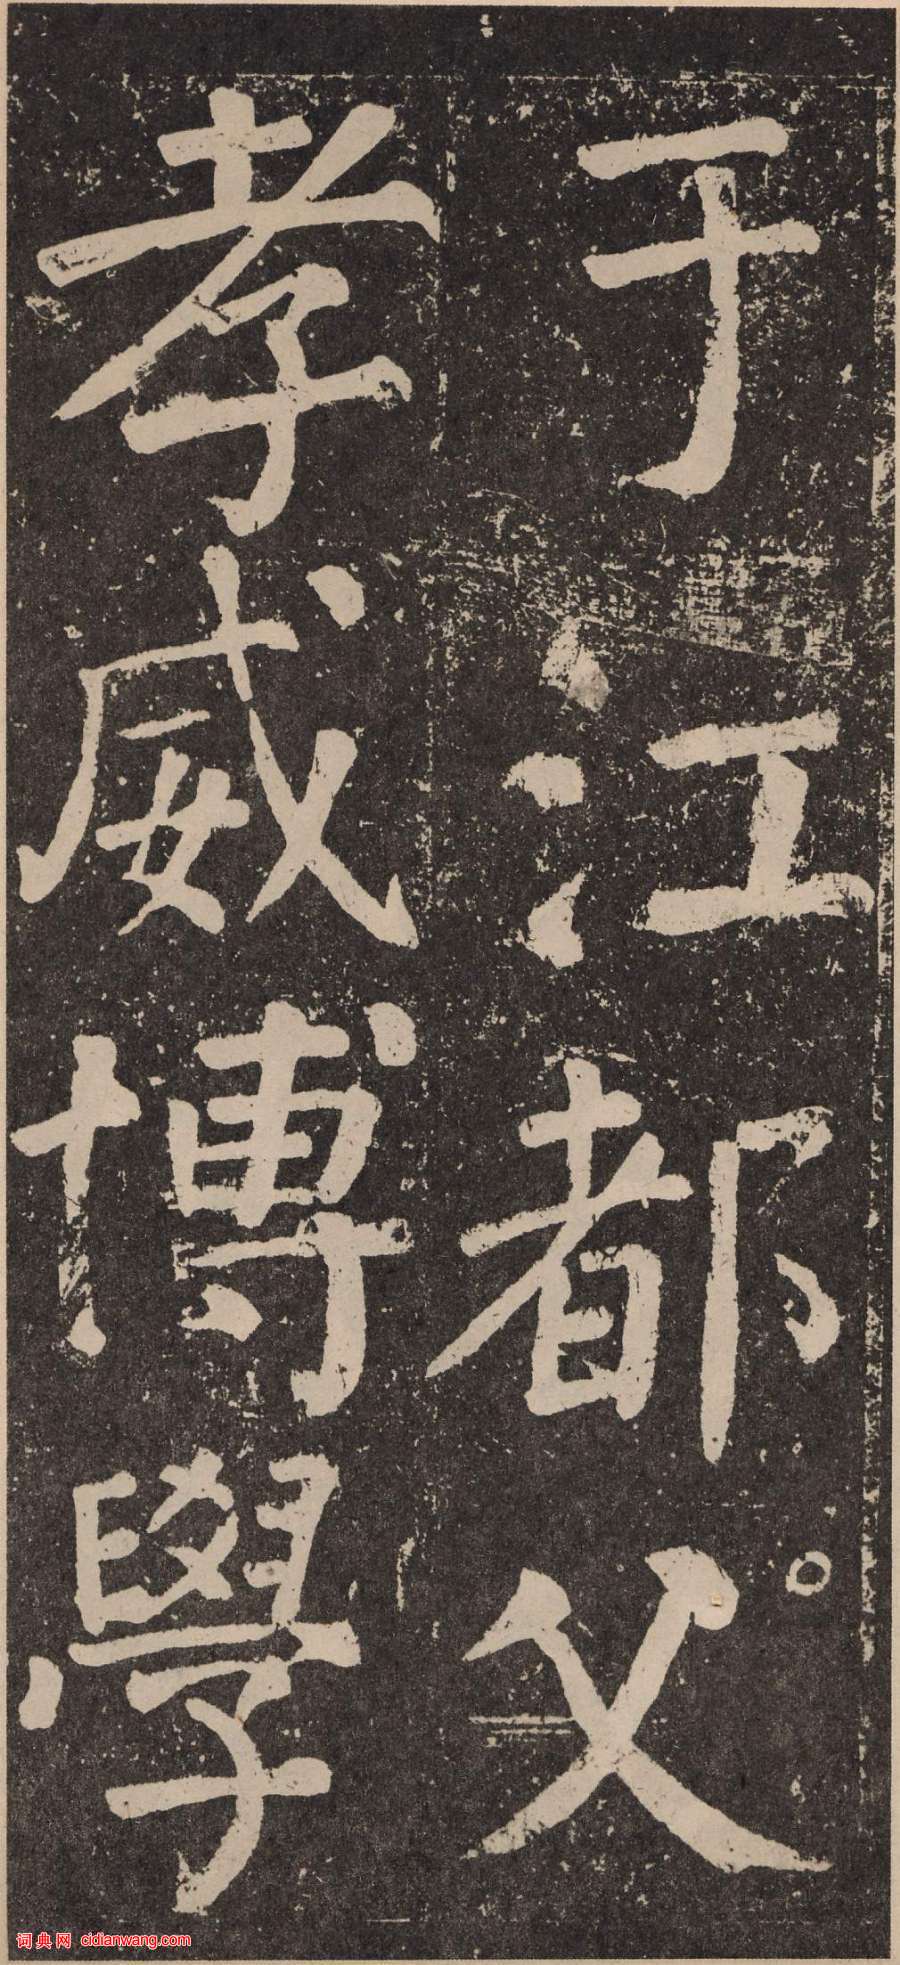 于江都父
孝威博學
词典网 cidianwang.com